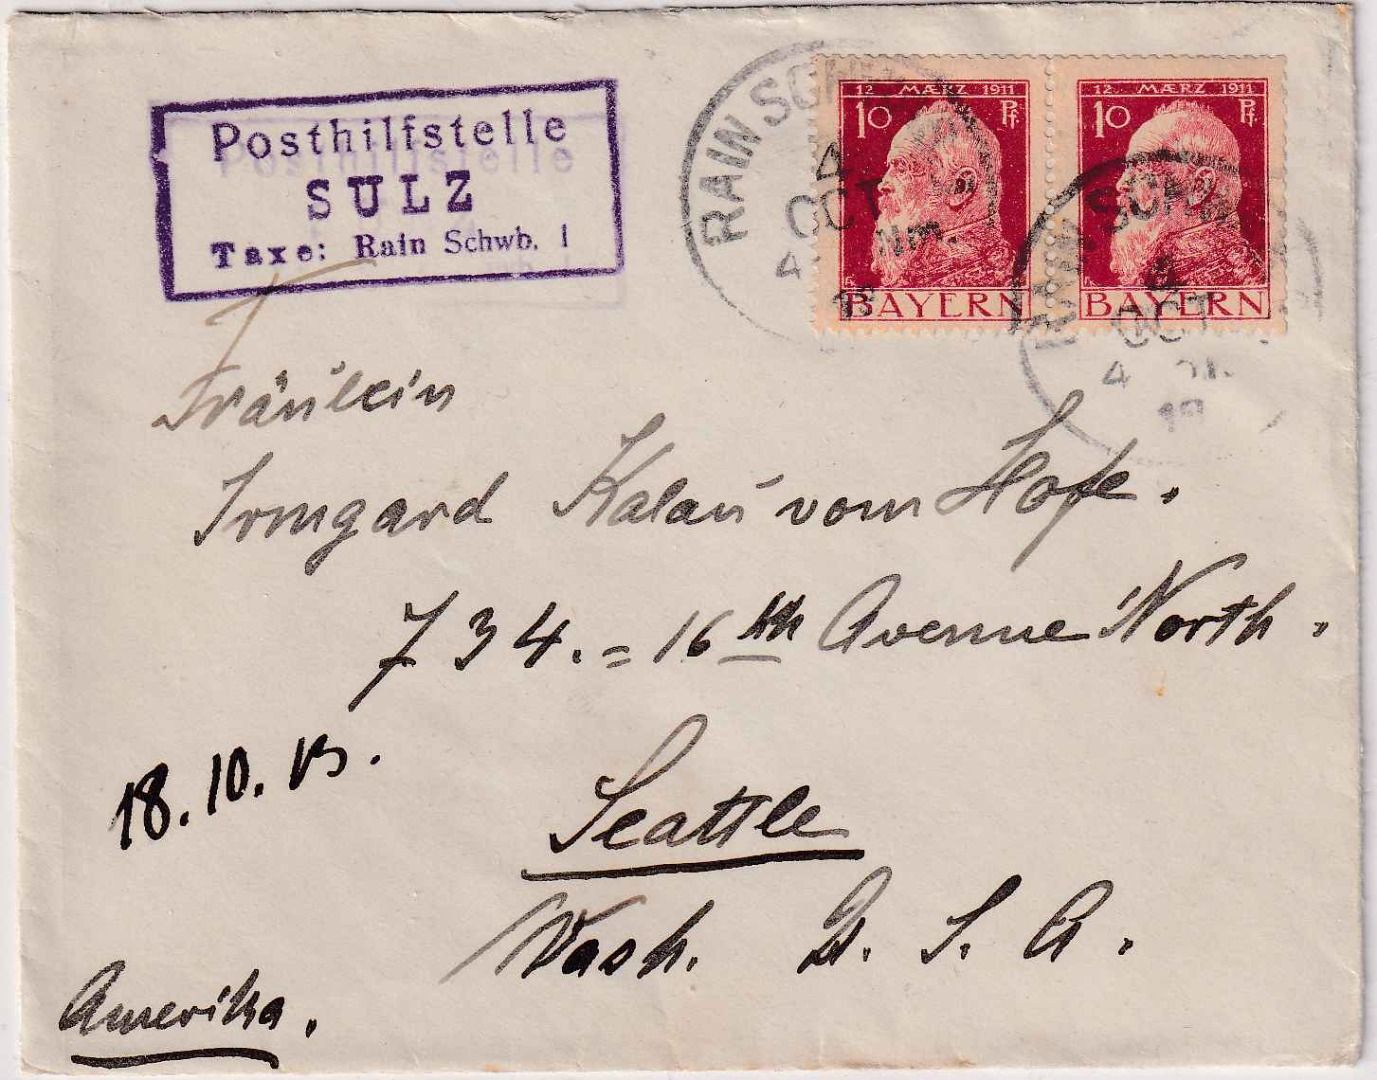 Posthilfstelle
SULZ
Taxe: Rain Schwb. 1
RAIN SCHW
4
OCT
4 Nm.
12. MÆRZ 1911
10 Pf
BAYERN
12. MÆRZ 1911
10 Pf
BAYERN
RAIN SCHW
OCT
4
Fräulein
Irmgard Kalau vom Hofe.
734.=16th Avenue North.
18.10.13.
Seattle
Wash. U. S. A.
Amerika.